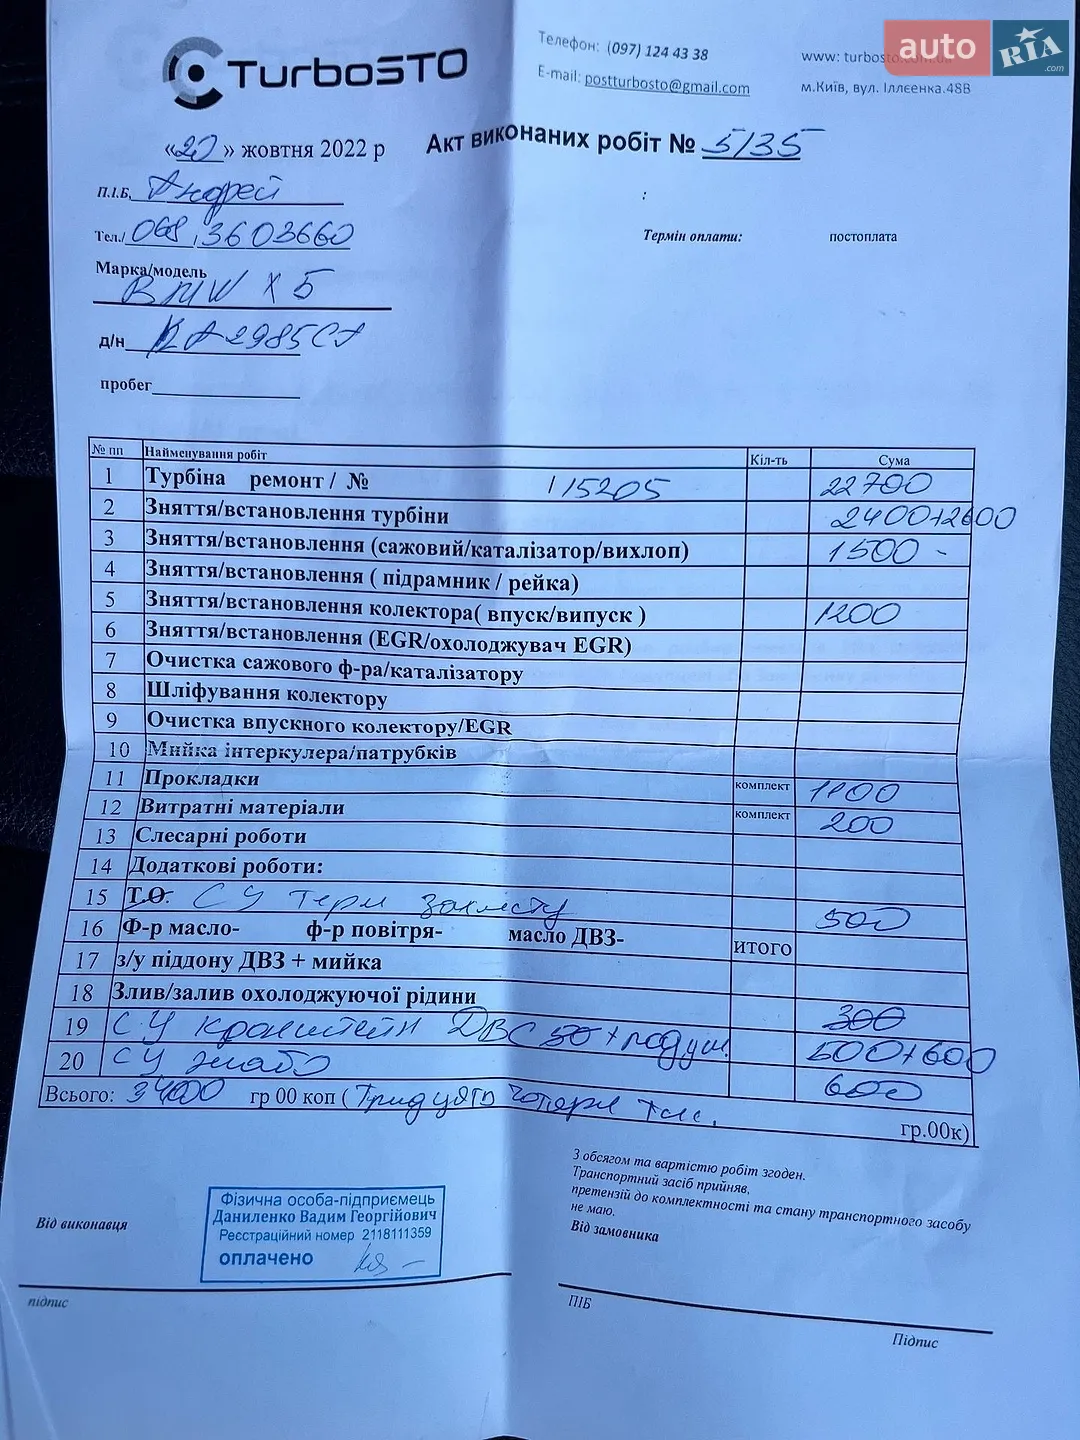 auto RIA .com
TurboSTO
Телефон: (097) 124 43 38
www: turbosto.com.ua
E-mail: postturbosto@gmail.com
м.Київ, вул. Іллєенка.48В
«20» жовтня 2022 р
Акт виконаних робіт № 5135
П.І.Б. Андрей
:
Тел./ 068, 3603660
Термін оплати: постоплата
Марка/модель
BMW X 5
д/н КА2985СА
пробег
№ пп Найменування робіт Кіл-ть Сума
1 Турбіна ремонт / № 115205 22700
2 Зняття/встановлення турбіни 2400+2600
3 Зняття/встановлення (сажовий/каталізатор/вихлоп) 1500 -
4 Зняття/встановлення ( підрамник / рейка)
5 Зняття/встановлення колектора( впуск/випуск ) 1200
6 Зняття/встановлення (EGR/охолоджувач EGR)
7 Очистка сажового ф-ра/каталізатору
8 Шліфування колектору
9 Очистка впускного колектору/EGR
10 Мийка інтеркулера/патрубків
11 Прокладки комплект 1100
12 Витратні матеріали комплект 200
13 Слесарні роботи
14 Додаткові роботи:
15 Т.О. СУ терм захисту 500
16 Ф-р масло- ф-р повітря- масло ДВЗ- итого
17 з/у піддону ДВЗ + мийка
18 Злив/залив охолоджуючої рідини 300
19 СУ кронштейн ДВС + подуш. 500+600
20 СУ жабо 600
Всього: 34000 гр 00 коп (Тридцять чотири тис. гр.00к)
З обсягом та вартістю робіт згоден.
Транспортний засіб прийняв,
претензій до комплектності та стану транспортного засобу
не маю.
Від виконавця
Від замовника
Фізична особа-підприємець
Даниленко Вадим Георгійович
Реєстраційний номер 2118111359
оплачено
підпис
ПІБ
Підпис